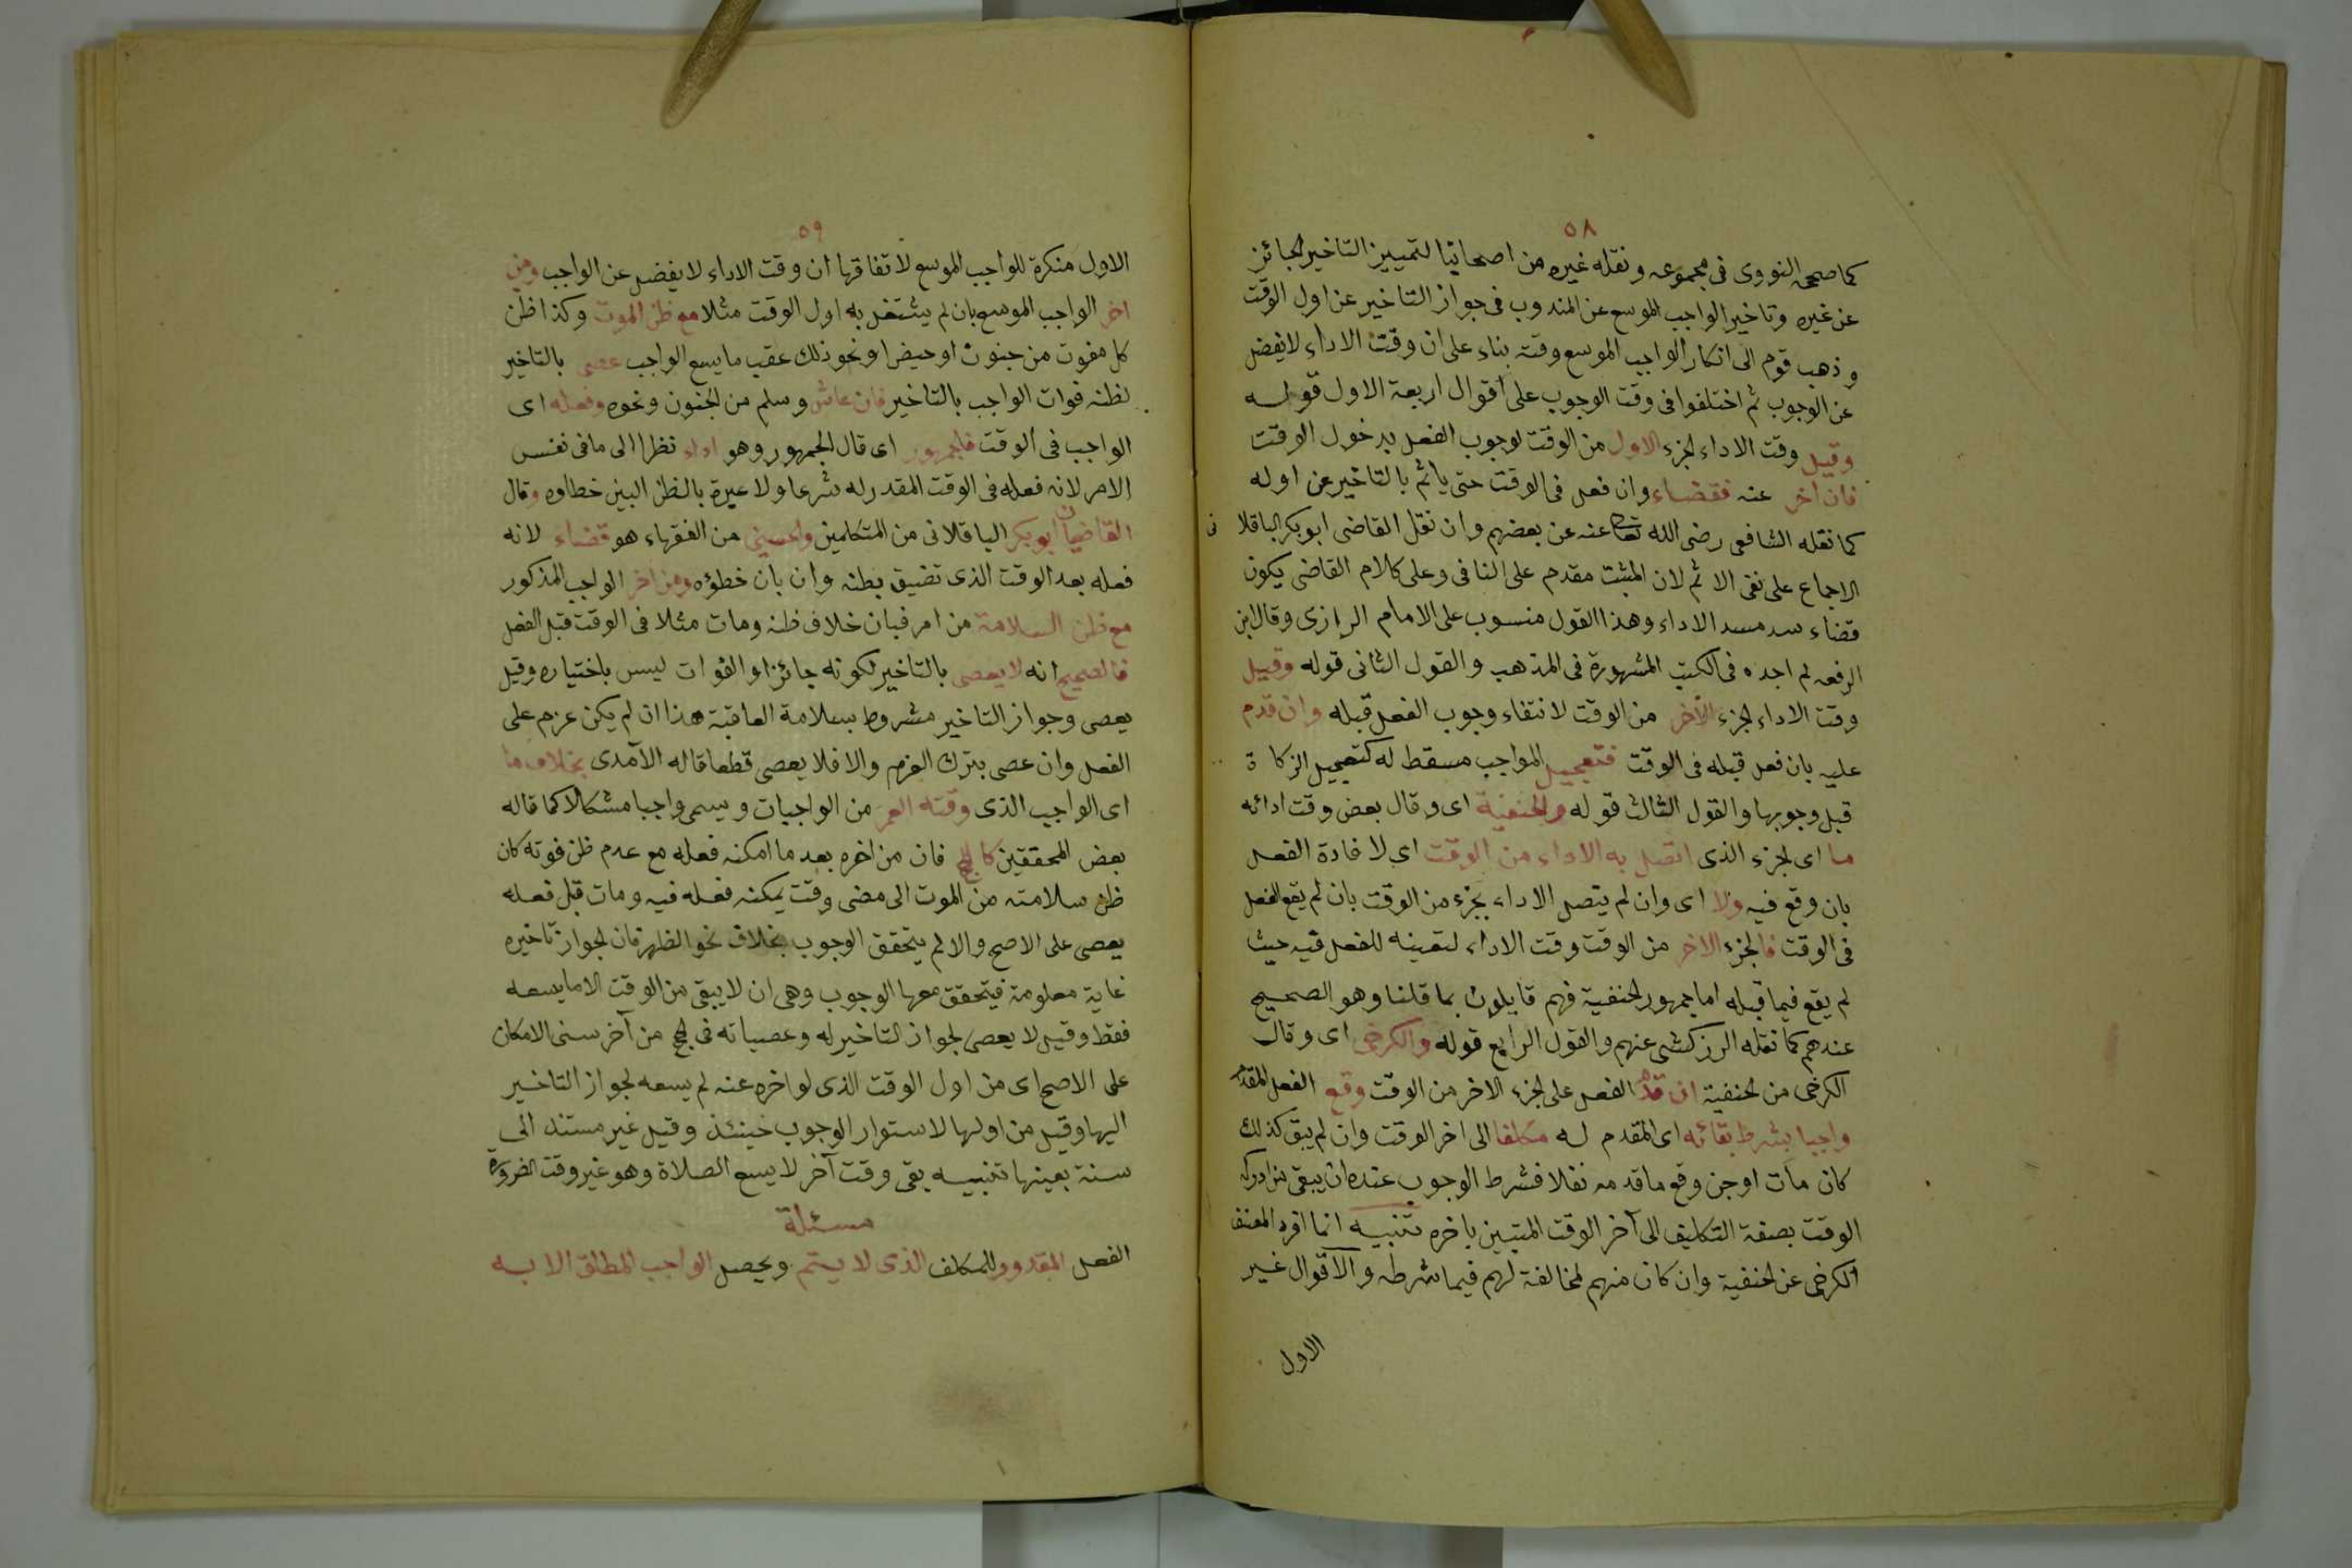 ٥٨
كما صححه النووى فى مجموعه ونقله غيره من اصحابنا لتمييز التاخير الجائز
عن غيره وتاخير الواجب الموسع عن المندوب فى جواز التاخير عن اول الوقت
وذهب قوم الى انكار الواجب الموسع وقته بناء على ان وقت الاداء لا يفضل
عن الوجوب ثم اختلفوا فى وقت الوجوب على اقوال اربعة الاول قوله
وقيل وقت الاداء الجزء الاول من الوقت لوجوب الفعل بدخول الوقت
فان اخر عنه فقضاء وان فعل فى الوقت حتى ياثم بالتاخير عن اوله
كما نقله الشافعى رضى الله تعا عنه عن بعضهم وان نقل القاضى ابو بكر الباقلانى
الاجماع على نفى الاثم لان المثبت مقدم على النافى وعلى كلام القاضى يكون
قضاء سد مسد الاداء وهذا القول منسوب على الامام الرازى وقال ابن
الرفعه لم اجده فى الكتب المشهورة فى المذهب والقول الثانى قوله وقيل
وقت الاداء الجزء الآخر من الوقت لانتفاء وجوب الفعل قبله وان قدم
عليه بان فعل قبله فى الوقت فتعجيل الواجب مسقط له كتعجيل الزكاة
قبل وجوبها والقول الثالث قوله والحنفية اى وقال بعض وقت ادائه
ما اى الجزء الذى اتصل به الاداء من الوقت اى لاغادة الفعل
بان وقع فيه والا اى وان لم يتصل الاداء بجزء من الوقت بان لم يقع الفعل
فى الوقت فالجزء الاخر من الوقت وقت الاداء لتعينه للفعل فيه حيث
لم يقع فيما قبله اما جمهور الحنفية فهم قايلون بما قلنا وهو الصحيح
عندهم كما نقله الزركشى عنهم والقول الرابع قوله والكرخى اى وقال
الكرخى من الحنفية ان قدم الفعل على الجزء الاخر من الوقت وقع الفعل المقدم
واجبا بشرط بقائه اى المقدم له مكلفا الى اخر الوقت وان لم يبق كذلك
كان مات او جن وقع ما قدمه نفلا فشرط الوجوب عنده ان يبقى من ادرك
الوقت بصفة التكليف الى آخر الوقت المتبين باخره تنبيه انما افرد المصنف
الكرخى عن الحنفية وان كان منهم لمخالفة لهم فيما شرطه والاقوال غير
الاول
٥٩
الاول منكرة للواجب الموسع لاتفاقها ان وقت الاداء لا يفضل عن الواجب ومن
اخر الواجب الموسع بان لم يشتغل به اول الوقت مثلا مع ظن الموت وكذا ظن
كل مفوت من جنون او حيض او نحو ذلك عقب ما يسع الواجب عصى بالتاخير
لظنه فوات الواجب بالتاخير فان عاش وسلم من الجنون ونحوه وفعله اى
الواجب فى الوقت فالجمهور اى قال الجمهور وهو اداء نظرا الى ما فى نفس
الامر لانه فعله فى الوقت المقدر له شرعا ولا عبرة بالظن البين خطاوه وقال
القاضيان ابو بكر الباقلانى من المتكلمين والحسينى من الفقهاء هو قضاء لانه
فعله بعد الوقت الذى تضيق بظنه وان بان خطؤه ومن اخر الواجب المذكور
مع ظن السلامة من امر فبان خلاف ظنه ومات مثلا فى الوقت قبل الفعل
فالصحيح انه لا يعصى بالتاخير لكونه جائزا والفوات ليس باختياره وقيل
يعصى وجواز التاخير مشروط بسلامة العاقبة هذا ان لم يكن عزم على
الفعل وان عصى بترك العزم والا فلا يعصى قطعا قاله الآمدى بخلاف ما
اى الواجب الذى وقته العمر من الواجبات ويسمى واجبا مشكلا كما قاله
بعض المحققين كالحج فان من اخره بعد ما امكنه فعله مع عدم ظن فوته كان
ظن سلامته من الموت الى مضى وقت يمكنه فعله فيه ومات قبل فعله
يعصى على الاصح والا لم يتحقق الوجوب بخلاف نحو الظهر فان لجواز تاخيره
غاية معلومة فيتحقق معها الوجوب وهى ان لا يبقى من الوقت الا ما يسعه
فقط وقيل لا يعصى لجواز التاخير له وعصيانه فى الحج من آخر سنى الامكان
على الاصح اى من اول الوقت الذى لو اخره عنه لم يسعه لجواز التاخير
اليها وقيل من اولها لاستوار الوجوب حينئذ وقيل غير مستند الى
سنة بعينها تنبيه بقى وقت آخر لا يسع الصلاة وهو غير وقت الضرورة
مسئلة
الفعل المقدور للمكلف الذى لا يتم ويحصل الواجب المطلق الا به